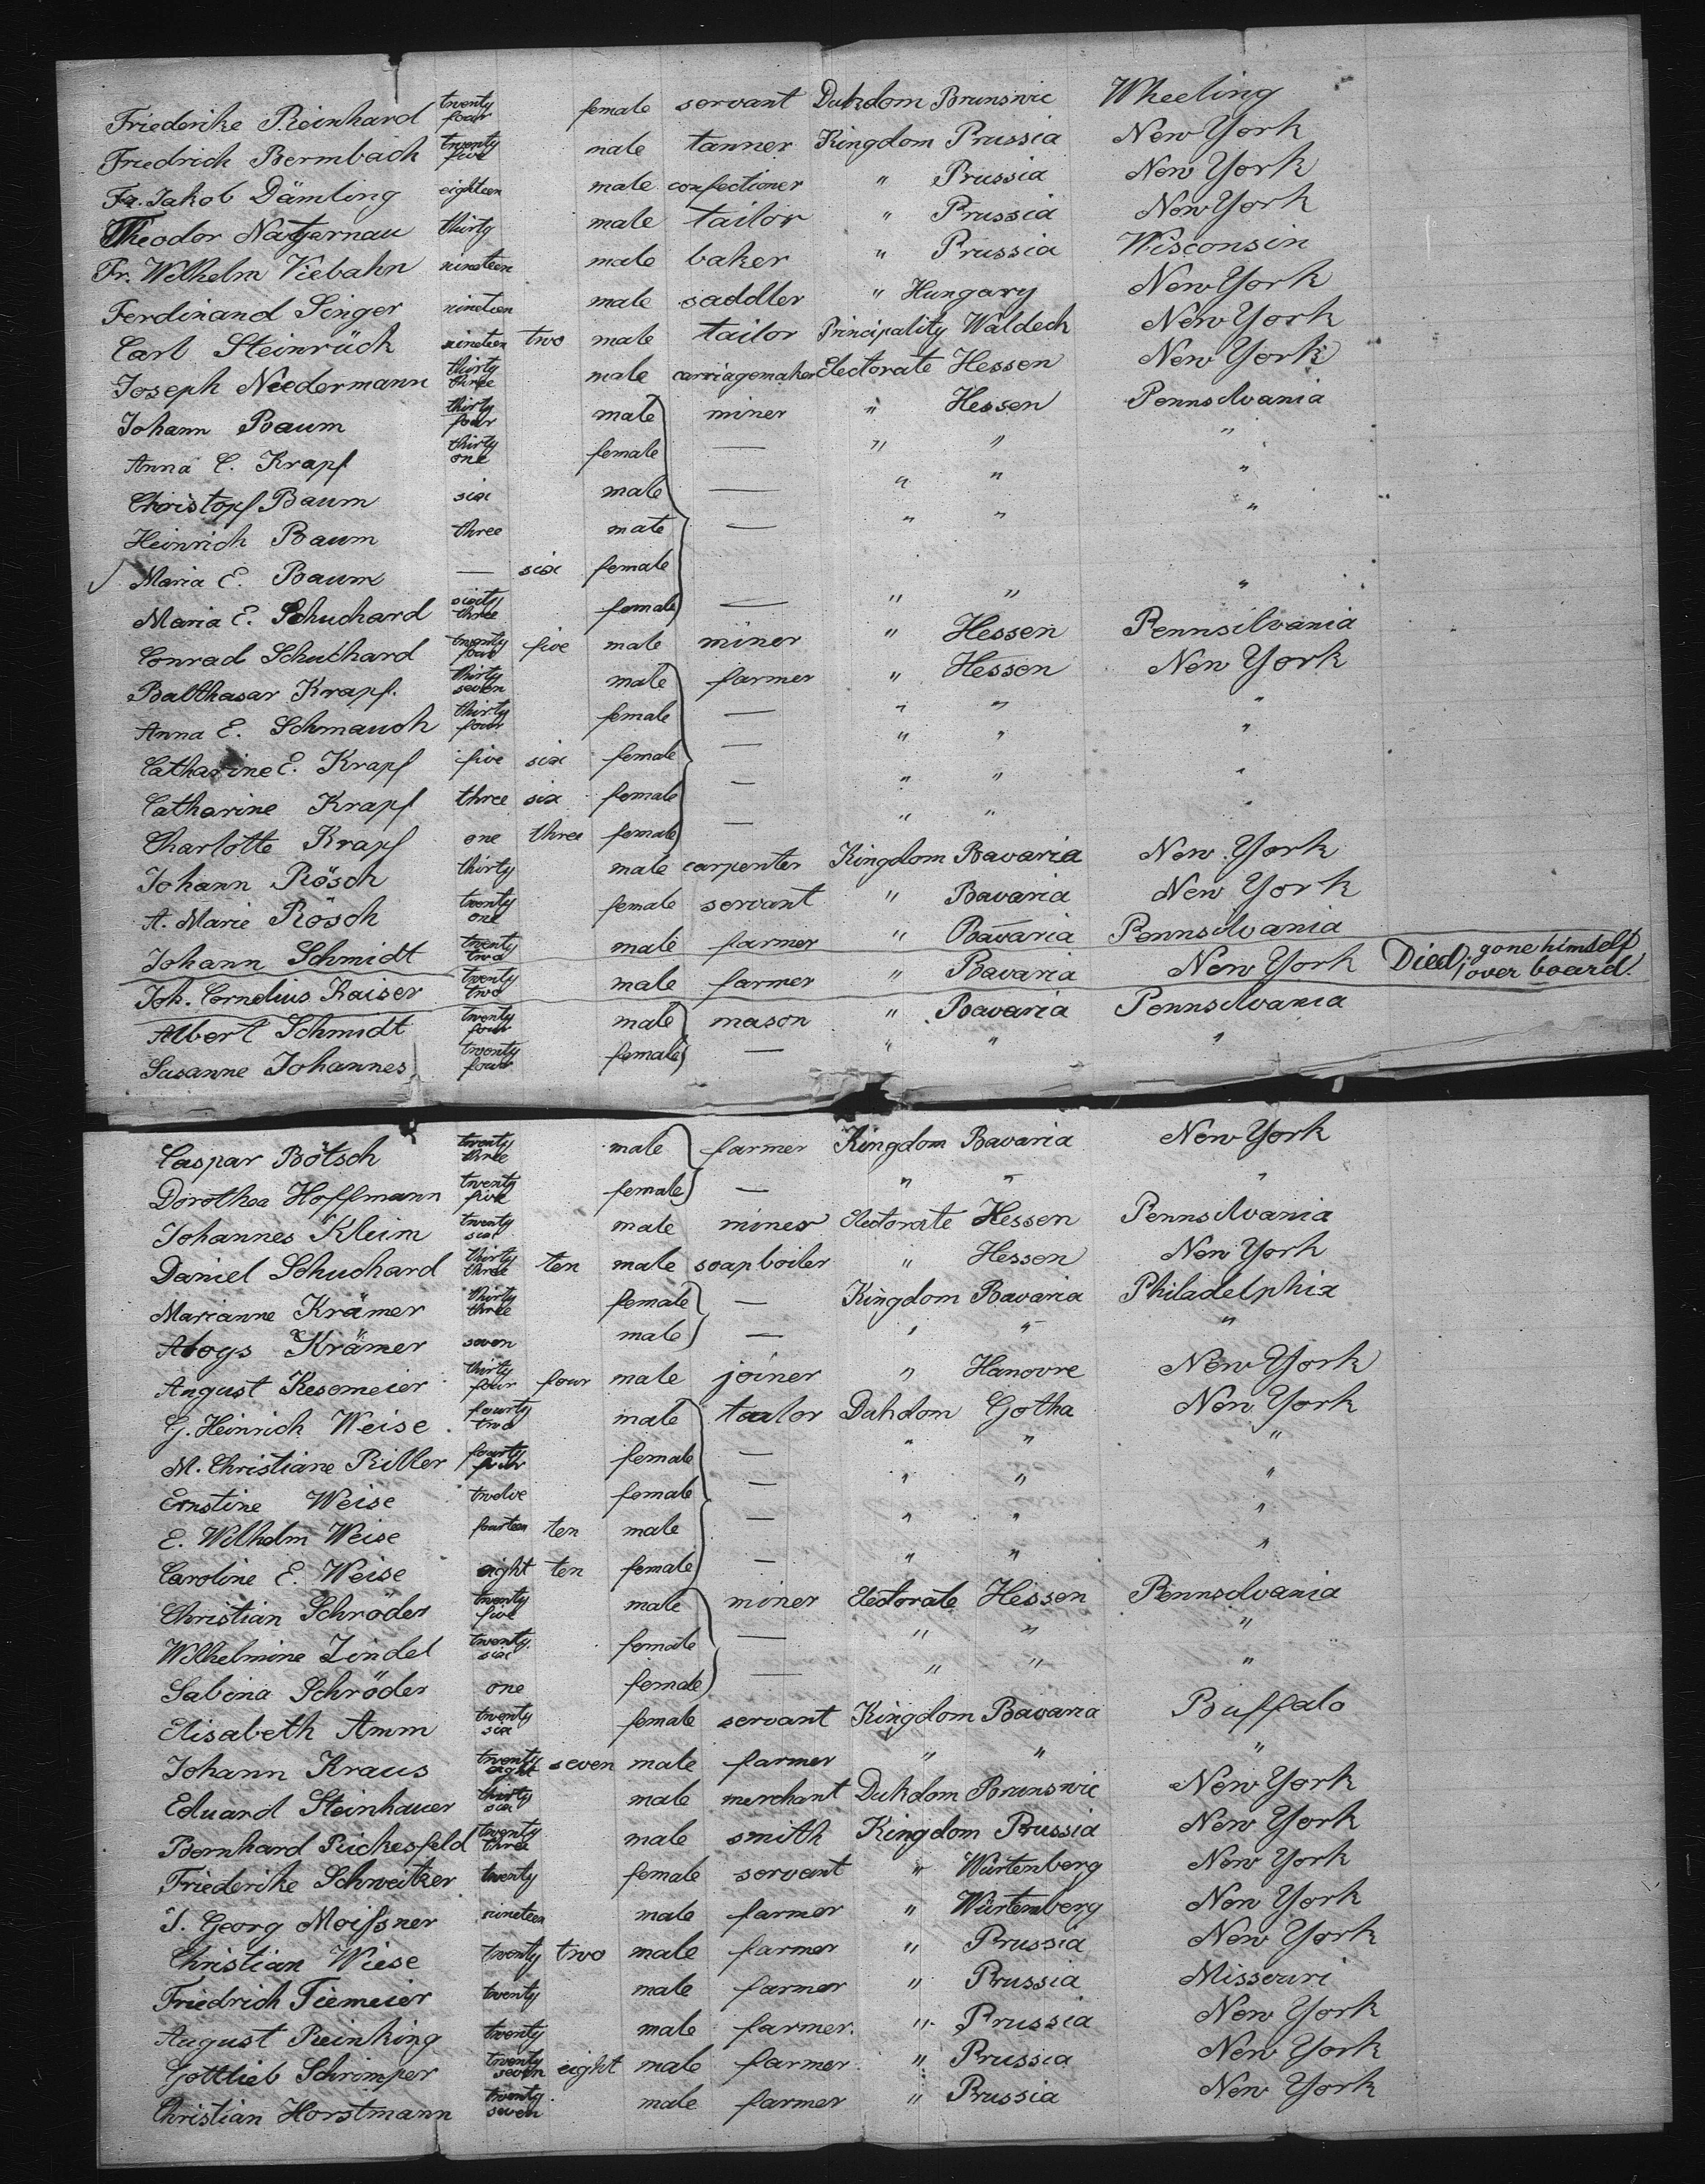 Friederike Reinhard twenty four female servant Dukdom Brunswic Wheeling
Friedrich Bermbach twenty five male tanner Kingdom Prussia New York
Fr. Jakob Dämling eighteen male confectioner " Prussia New York
Theodor thirty male tailor " Prussia New York
Fr. Wilhelm Viebahn nineteen male baker " Prussia Wisconsin
Ferdinand Singer nineteen male saddler " Hungary New York
Carl Steinrück nineteen two male tailor Principality Waldeck New York
Joseph Niedermann thirty three male carriagemaker Electorate Hessen New York
Johann Baum thirty four male miner " Hessen Pennsilvania
Anna C. Krapf thirty one female — " " "
Christopf Baum six male — " " "
Heinrich Baum three male — " " "
Maria E. Baum — six female
Maria E. Schuchard sixty three female — " " "
Conrad Schuchard twenty four five male miner " Hessen Pennsilvania
Balthasar Krapf. thirty seven male farmer " Hessen New York
Anna E. Schmauch thirty four female — " " "
Catharine E. Krapf five six female — " " "
Catharine Krapf three six female — " " "
Charlotte Krapf one three female — " " "
Johann Rösch thirty male carpenter Kingdom Bavaria New York
A. Marie Rösch twenty one female servant " Bavaria New York
Johann Schmidt twenty two male farmer " Bavaria Pennsilvania
Joh. Cornelius Kaiser twenty two male farmer " Bavaria New York Died, gone himself over board.
Albert Schmidt twenty four male mason " Bavaria Pennsilvania
Susanne Johannes twenty four female — " " "
Caspar Bötsch twenty three male farmer Kingdom Bavaria New York
Dorothea Hoffmann twenty five female — " " "
Johannes Kleim twenty six male miner Electorate Hessen Pennsilvania
Daniel Schuchard thirty three ten male soapboiler " Hessen New York
Marianne Krämer thirty three female — Kingdom Bavaria Philadelphia
Aloys Krämer seven male — " " "
August Kesemeier thirty four four male joiner " Hanovre New York
G. Heinrich Weise fourty two male tailor Dukdom Gotha New York
M. Christiane Ritter fourty four female — " " "
Ernstine Weise twelve female — " " "
E. Wilhelm Weise fourteen ten male — " " "
Caroline E. Weise eight ten female — " " "
Christian Schröder twenty five male miner Electorate Hessen Pennsilvania
Wilhelmine Zindel twenty six female — " " "
Sabina Schröder one female — " " "
Elisabeth Amm twenty six female servant Kingdom Bavaria Buffalo
Johann Kraus twenty eight seven male farmer " " "
Eduard Steinhauer thirty six male merchant Dukdom Brunswic New York
Bernhard Richesfeld twenty three male smith Kingdom Prussia New York
Friederike Schweitzer twenty female servant " Würtenberg New York
J. Georg Moißner nineteen male farmer " Würtemberg New York
Christian Wiese twenty two male farmer " Prussia New York
Friedrich Tiemeier twenty male farmer " Prussia Missouri
August Reinking twenty male farmer. " Prussia New York
Gottlieb Schrimper twenty seven eight male farmer " Prussia New York
Christian Horstmann twenty seven male farmer " Prussia New York